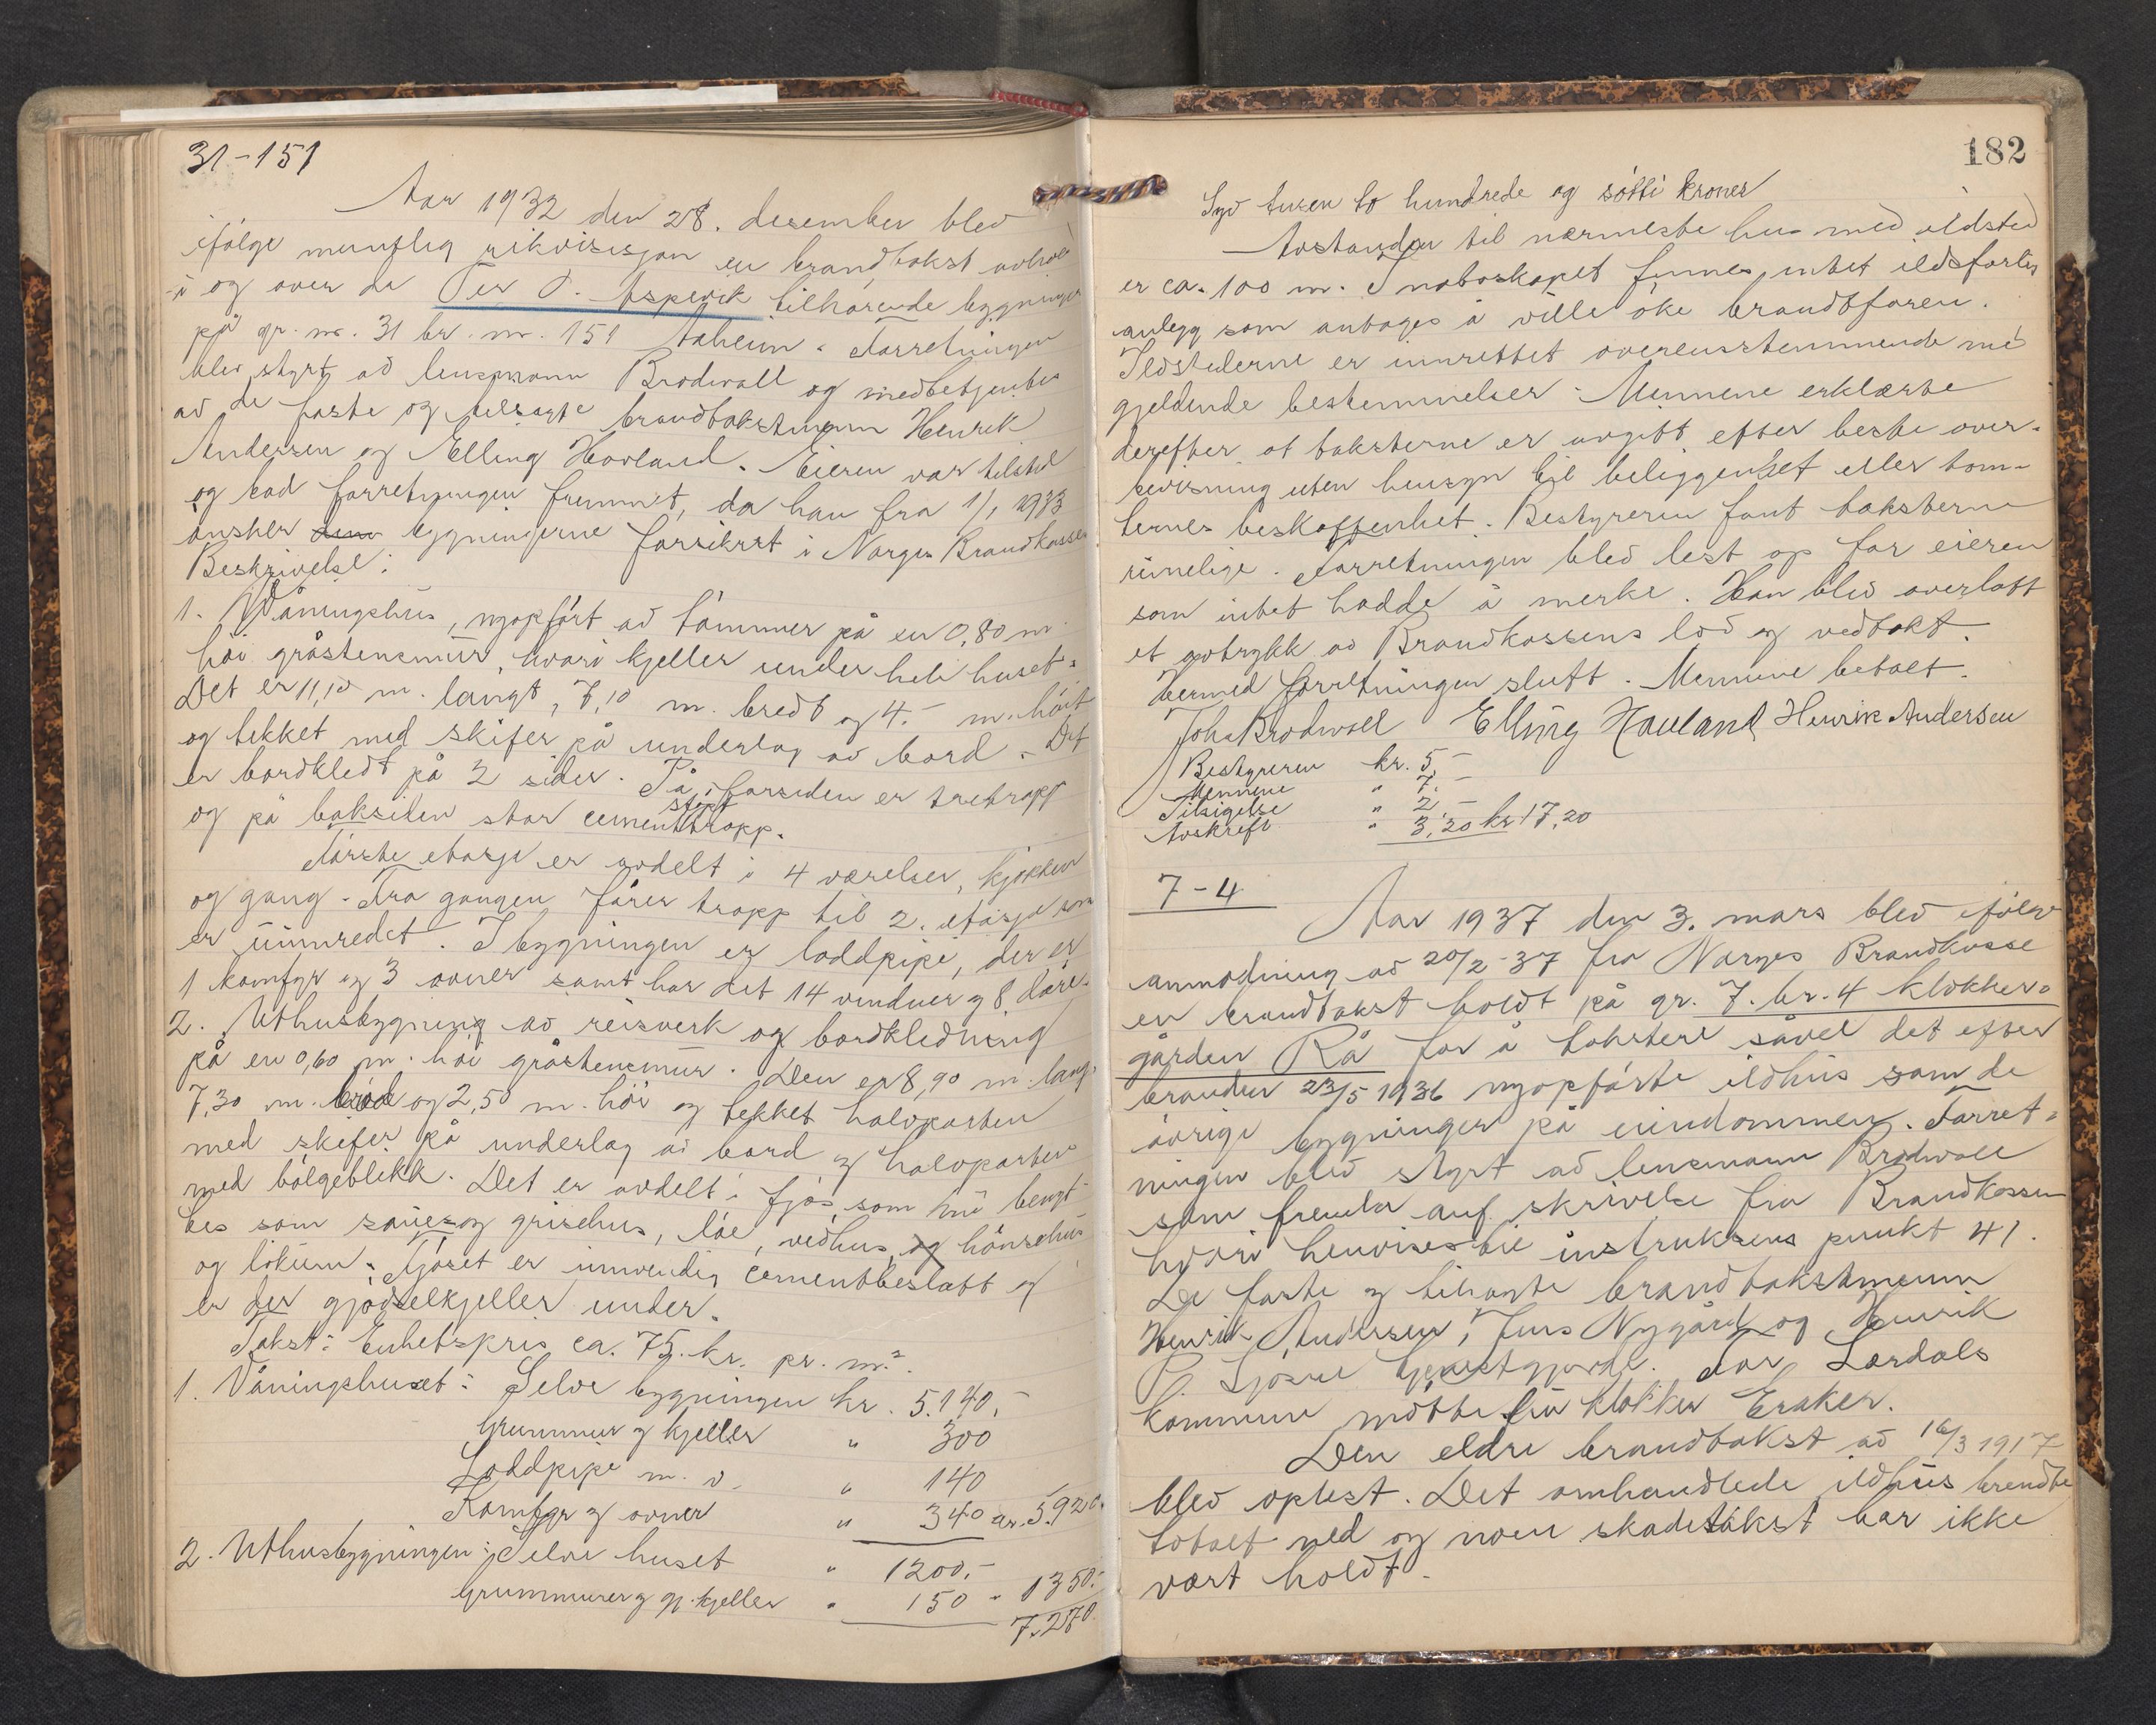 31-151
Aar 1932 den 28. desember blev
ifölge muntlig rikvisisjon en brandtakst avholdt
i og over de Per O. Aspevik tilhörende bygninger
på gr. nr. 31 br. nr. 151 Aaheim. Forretningen
blev styrt av lensmann Brodwall og medbetjentes
av de faste og tilsagte brandtakstmenn Henrik
Andersen og Elling Hovland. Eieren var tilsted
og bad forretningen fremmet, da han fra 1/1 1933
önsker bygningerne forsikret i Norges Brandkasse
Beskrivelse:
1. Våningshus, nyopfört av tömmer på en 0,80 m
höi gråstensmur, hvori kjeller under hele huset.
Det er 11,10 m. langt, 7,10 m. bredt og 4.- m. höit
og tekket med skifer på underlag av bord. Det
er bordkledt på 2 sider. På forsiden er tretrapp
og på baksiden stor støpt cementtrapp.
Förste etasje er avdelt i 4 værelser, kjökken
og gang. Fra gangen förer trapp til 2. etasje som
er uinnredet. I bygningen er loddpipe, der er
1 komfyr og 3 ovner samt har det 14 vinduer og 8 döre.
2. Uthusbygning av reisverk og bordkledning
på en 0,60 m. höi gråstensmur. Den er 8,90 m. lang,
7,30 m. bred og 2,50 m. höi og tekket halvparten
med skifer på underlag av bord og halvparten
med bölgeblikk. Det er avdelt i fjös, som nu benyt-
tes som saue- og grisehus, löe, vedhus, og hönsehus
og lokum. Fjöset er innvendig cementbeslått og
er der gjödselkjeller under.
Takst: Enhetspris ca. 75. kr. pr. m.²
1. Våningshuset: Selve bygningen kr. 5.140,-
Grunnmur og kjeller " 300
Loddpipe m. v. " 140
Komfyr og ovner " 340 kr. 5.920.
2. Uthusbygningen: Selve huset " 1200.-
Grunnmurer og gj. kjeller " 150 " 1350.-
7.270.
182
Syv tusen to hundrede og sötti kroner
Avstanden til nærmeste hus med ildsted
er ca. 100 m. I naboskapet finnes intet ildsfarlig
anlegg som antages å ville öke brandtfaren.
Ildstederne er innrettet overensstemmende med
gjeldende bestemmelser. Mennene erklærte
derefter at taksterne er avgitt efter beste over-
bevisning uten hensyn til beliggenhet eller tom-
ternes beskaffenhet. Bestyreren fant taksterne
rimelige. Forretningen blev lest op for eieren
som intet hadde å merke. Han blev overlatt
et avtrykk av Brandkassens lov og vedtekt.
Hermed forretningen slutt. Mennene betalt.
Joh. Brodwall Elling Hauland Henrik Andersen
Bestyreren kr. 5,-
Mennene " 7.-
Tilsigelse " 2,-
Avskrift " 3,20 kr 17,20
7-4
Aar 1937 den 3. mars blev ifölge
anmodning av 20/2-37 fra Norges Brandkasse
en brandtakst holdt på gr. 7. br. 4 klokker-
gården Rå for å takstere såvel det efter
branden 23/5 1936 nyopförte ildhus som de
övrige bygninger på eiendommen. Forret-
ningen blev styrt av lensmann Brodwall
som fremla anf. skrivelse fra Brandkassen
hvori henvises til instruksens punkt 41.
De faste og tilsagte brandtakstmenn
Henrik Andersen, Jens Nygård og Henrik
P. Ljösne For Lærdals
kommune mötte fru klokker Eraker.
Den eldre brandtakst av 16/3 1917
blev oplest. Det omhandlede ildhus brendte
totalt ned og noen skadetakst bar ikke
vært holdt.